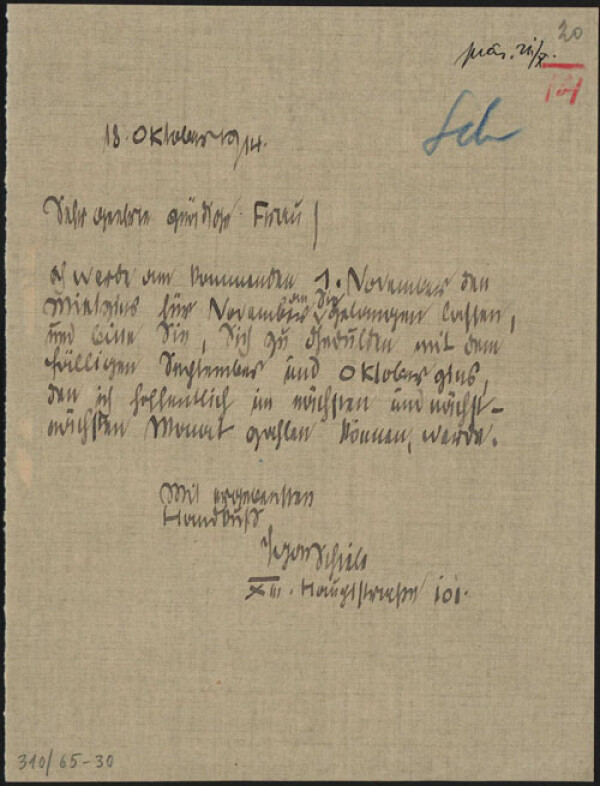 20
präs. 21/X.
Sch
18. Oktober 1914.
Sehr geehrte gnädige Frau!
Ich werde am kommenden 1. November den
Mietzins für November an Sie gelangen lassen,
und bitte Sie, Sich zu gedulden mit dem
fälligen September und Oktober zins,
den ich hoffentlich im nächsten und nächst-
nächsten Monat zahlen können, werde.
Mit ergebensten
Handkuß
Egon Schiele
XIII. Hauptstrasse 101.
310/65-30